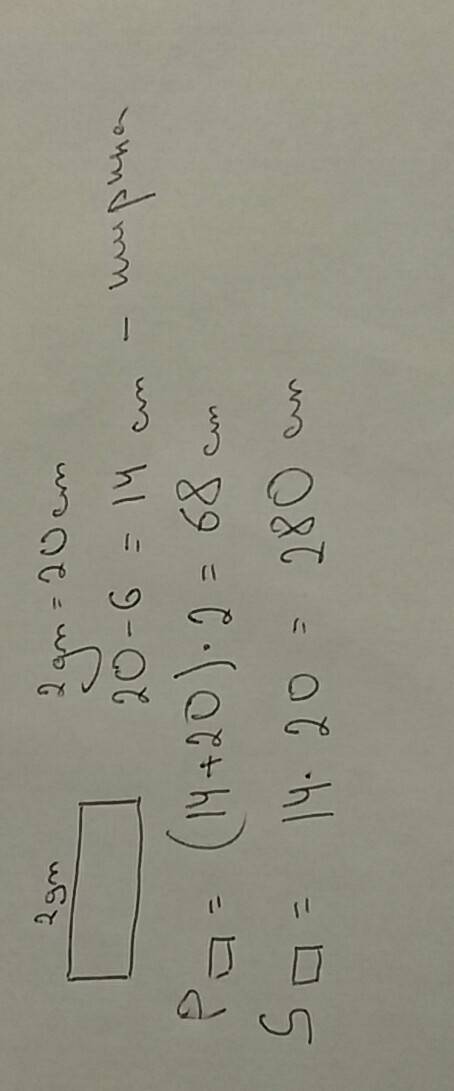 2дм
2дм = 20 см
20 - 6 = 14 см - ширина
P□ = (14+20)·2 = 68 см
S□ = 14·20 = 280 см